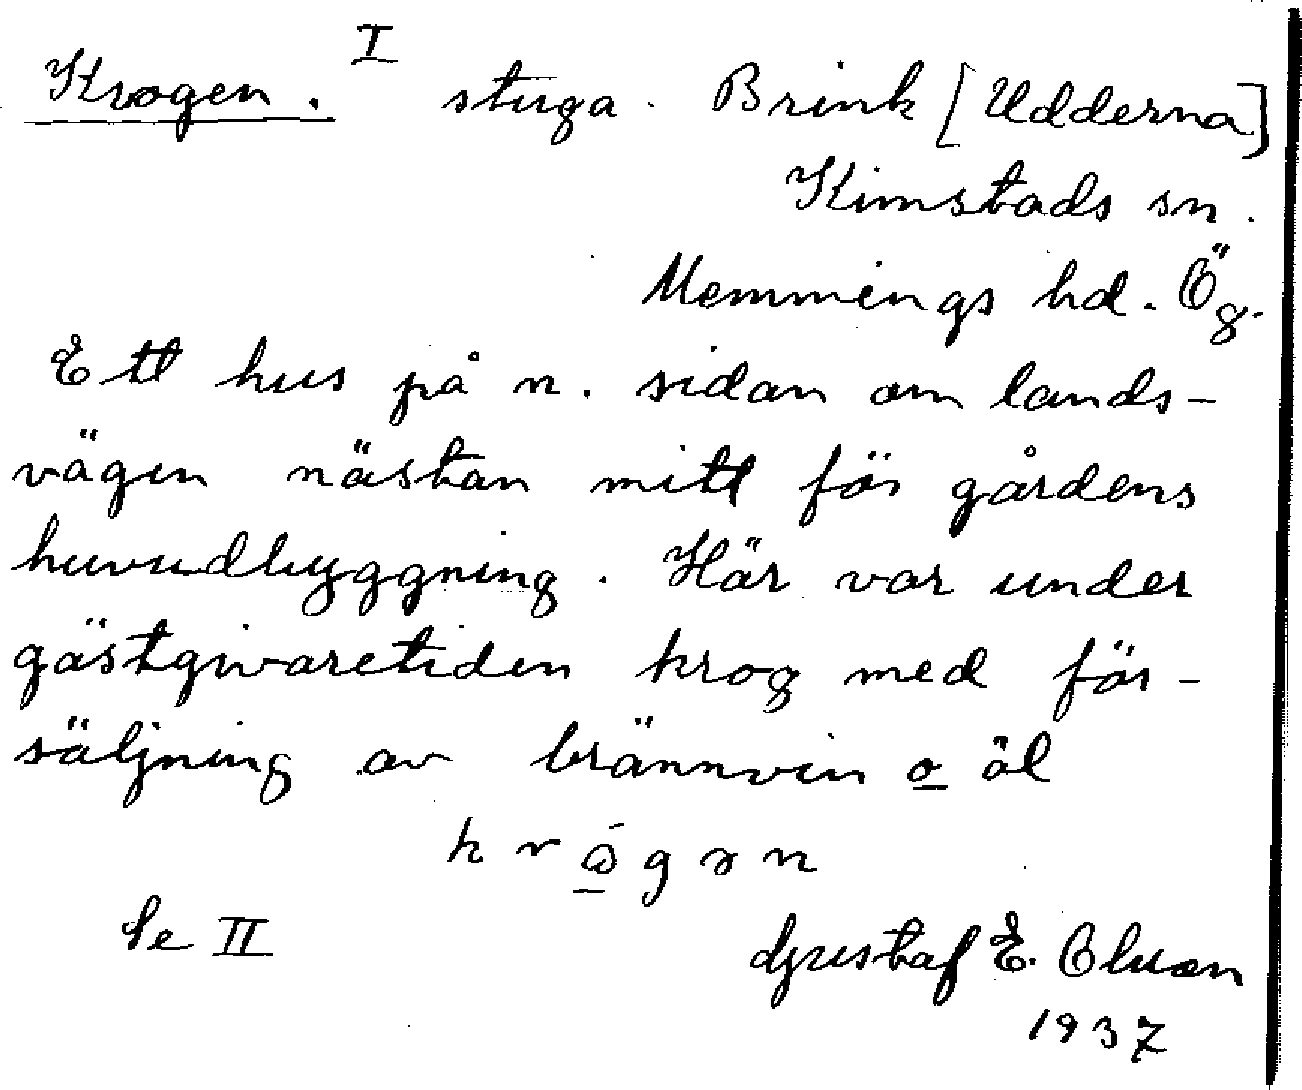 Krogen. I stuga. Brink [Udderna]
Kimstads sn.
Memmings hd. Ög.
Ett hus på n. sidan om lands-
vägen nästan mitt för gårdens
huvudbyggning. Här var under
gästgivaretiden krog med för-
säljning av brännvin o öl
gən
Se II
Gustaf E.
1937